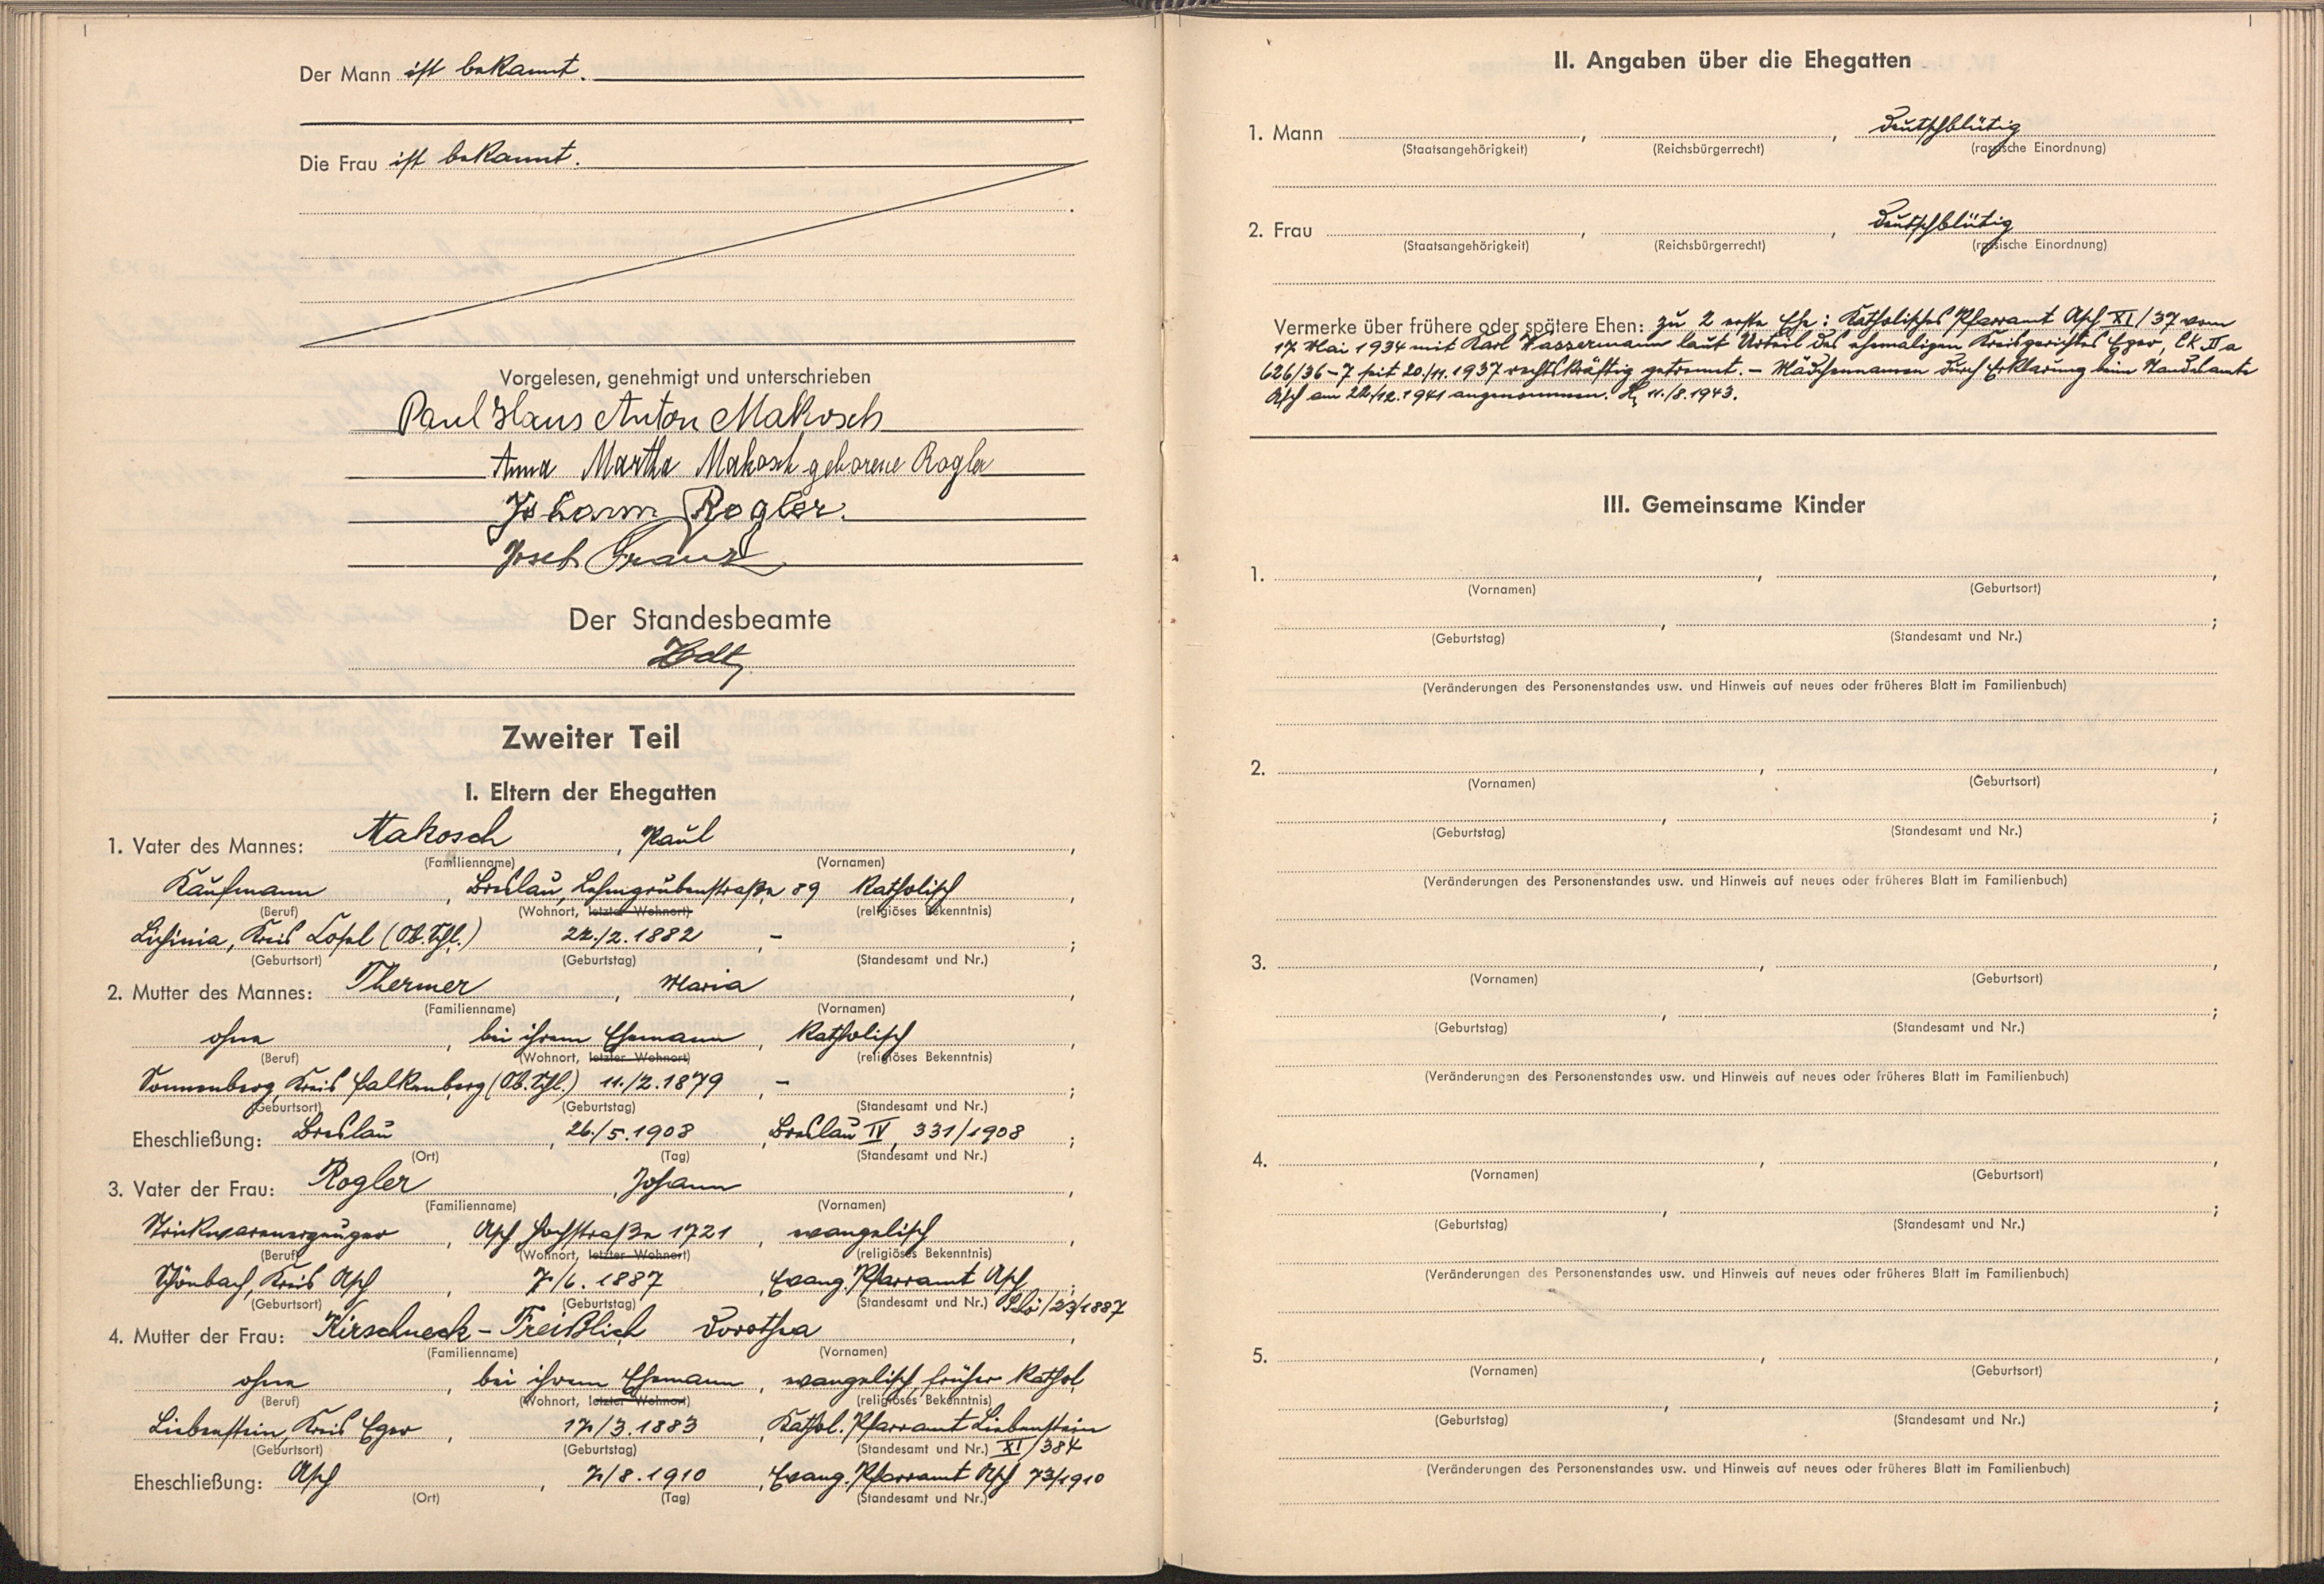 Der Mann ist bekannt.
Die Frau ist bekannt.
Vorgelesen, genehmigt und unterschrieben
Paul Hans Anton Makosch
Anna Martha Makosch geborene Rogler
Johann Rogler.
Josef Franz
Der Standesbeamte
Zweiter Teil
I. Eltern der Ehegatten
1. Vater des Mannes: Makosch, Paul,
(Familienname) (Vornamen)
Kaufmann, Breslau, Lehmgrubenstraße 89 katholisch,
(Beruf) (Wohnort, letzter Wohnort) (religiöses Bekenntnis)
Kreis Cosel (Ob. Schl.) 22./2.1882, -;
(Geburtsort) (Geburtstag) (Standesamt und Nr.)
2. Mutter des Mannes: Thermer, Maria,
(Familienname) (Vornamen)
ohne, bei ihrem Ehemann, katholisch,
(Beruf) (Wohnort, letzter Wohnort) (religiöses Bekenntnis)
Sonnenberg, Kreis Falkenberg (Ob. Schl.) 11./2.1879, -;
(Geburtsort) (Geburtstag) (Standesamt und Nr.)
Eheschließung: Breslau, 26./5.1908, Breslau IV, 331/1908;
(Ort) (Tag) (Standesamt und Nr.)
3. Vater der Frau: Rogler, Johann,
(Familienname) (Vornamen)
Strickwarenerzeuger, Asch, Hochstraße 1721, evangelisch,
(Beruf) (Wohnort, letzter Wohnort) (religiöses Bekenntnis)
Schönbach, Kreis Asch, 7./6.1887, Evang. Pfarramt Asch;
(Geburtsort) (Geburtstag) (Standesamt und Nr.) Schö/23/1887
4. Mutter der Frau: Kirschneck-Treißlich Dorothea,
(Familienname) (Vornamen)
ohne, bei ihrem Ehemann, evangelisch, früher kathol.
(Beruf) (Wohnort, letzter Wohnort) (religiöses Bekenntnis)
Liebenstein, Kreis Eger, 17./3.1883, Kathol. Pfarramt Liebenstein
(Geburtsort) (Geburtstag) (Standesamt und Nr.) XI/384
Eheschließung: Asch, 7./8.1910, Evang. Pfarramt Asch 73/1910
(Ort) (Tag) (Standesamt und Nr.)
II. Angaben über die Ehegatten
1. Mann , , deutschblütig
(Staatsangehörigkeit) (Reichsbürgerrecht) (rassische Einordnung)
2. Frau , , deutschblütig
(Staatsangehörigkeit) (Reichsbürgerrecht) (rassische Einordnung)
Vermerke über frühere oder spätere Ehen: zu 2 erste Ehe: Katholisches Pfarramt Asch XI/37 vom
17. Mai 1934 mit Karl Wassermann laut Urteil des ehemaligen Kreisgerichtes Eger, Ck IIa
626/36-7 seit 20./11.1937 rechtskräftig getrennt. - Mädchennamen durch Erklärung beim Standesamte
Asch am 22./12.1941 angenommen. 11./8.1943.
III. Gemeinsame Kinder
1. , ,
(Vornamen) (Geburtsort)
, ;
(Geburtstag) (Standesamt und Nr.)
(Veränderungen des Personenstandes usw. und Hinweis auf neues oder früheres Blatt im Familienbuch)
2. , ,
(Vornamen) (Geburtsort)
, ;
(Geburtstag) (Standesamt und Nr.)
(Veränderungen des Personenstandes usw. und Hinweis auf neues oder früheres Blatt im Familienbuch)
3. , ,
(Vornamen) (Geburtsort)
, ;
(Geburtstag) (Standesamt und Nr.)
(Veränderungen des Personenstandes usw. und Hinweis auf neues oder früheres Blatt im Familienbuch)
4. , ,
(Vornamen) (Geburtsort)
, ;
(Geburtstag) (Standesamt und Nr.)
(Veränderungen des Personenstandes usw. und Hinweis auf neues oder früheres Blatt im Familienbuch)
5. , ,
(Vornamen) (Geburtsort)
, ;
(Geburtstag) (Standesamt und Nr.)
(Veränderungen des Personenstandes usw. und Hinweis auf neues oder früheres Blatt im Familienbuch)